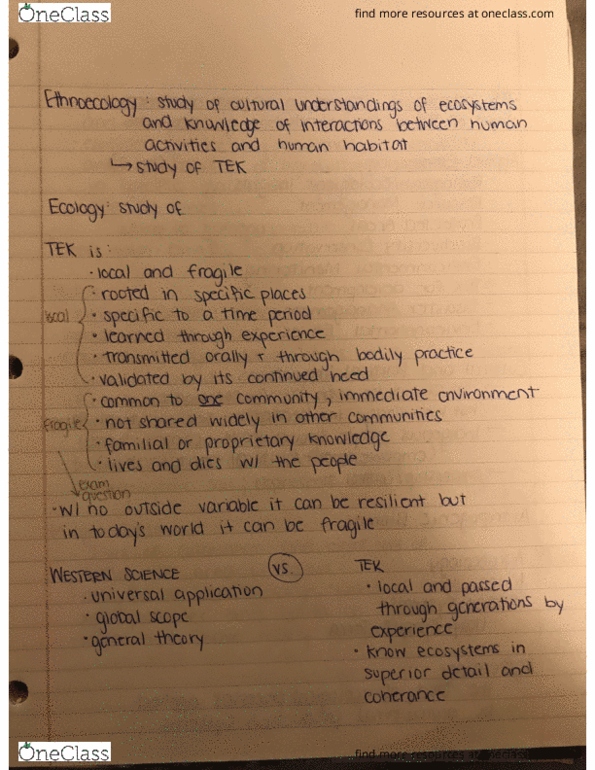 OneClass
find more resources at oneclass.com
Ethnoecology : study of cultural understandings of ecosystems
and knowledge of interactions between human
activities and human habitat
↳ study of TEK
Ecology: study of
TEK is:
· local and fragile
local
· rooted in specific places
· specific to a time period
· learned through experience
· transmitted orally + through bodily practice
· validated by its continued need
fragile
· common to one community, immediate environment
· not shared widely in other communities
· familial or proprietary knowledge
· lives and dies w/ the people
exam
question
· w/ no outside variable it can be resilient but
in today's world it can be fragile
WESTERN SCIENCE
· universal application
· global scope
· general theory
vs.
TEK
· local and passed
through generations by
experience
· know ecosystems in
superior detail and
coherance
OneClass
find more resources at oneclass.com